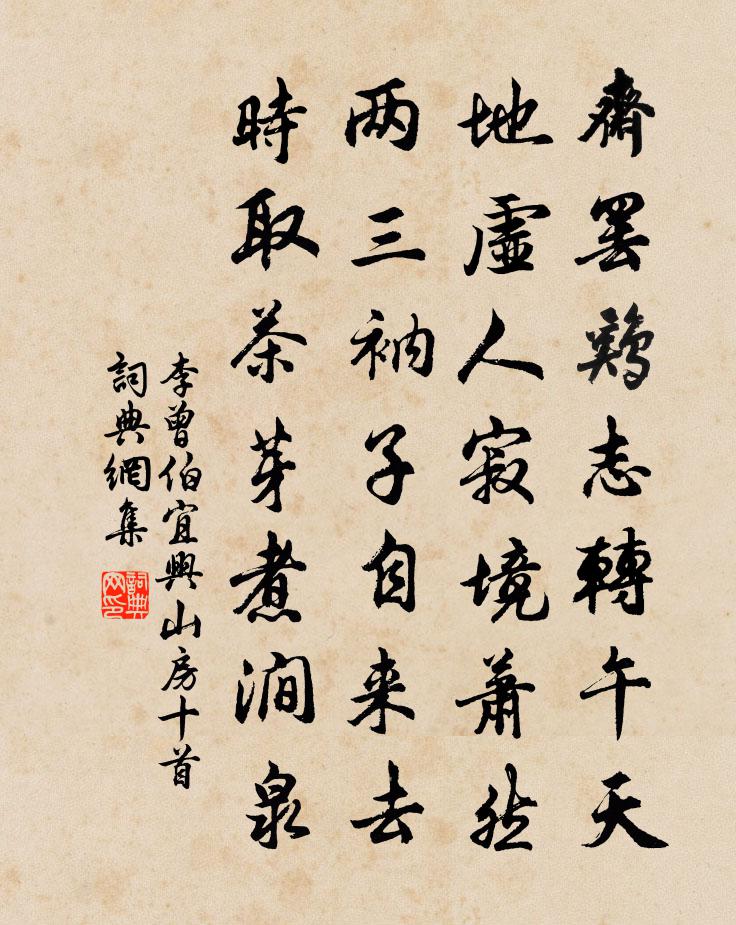 齋罢鷄志轉午天
地虛人寂境蕭然
两三衲子自来去
時取茶芽煮澗泉
李曾伯宜興山房十首
詞典網集
詞典网印